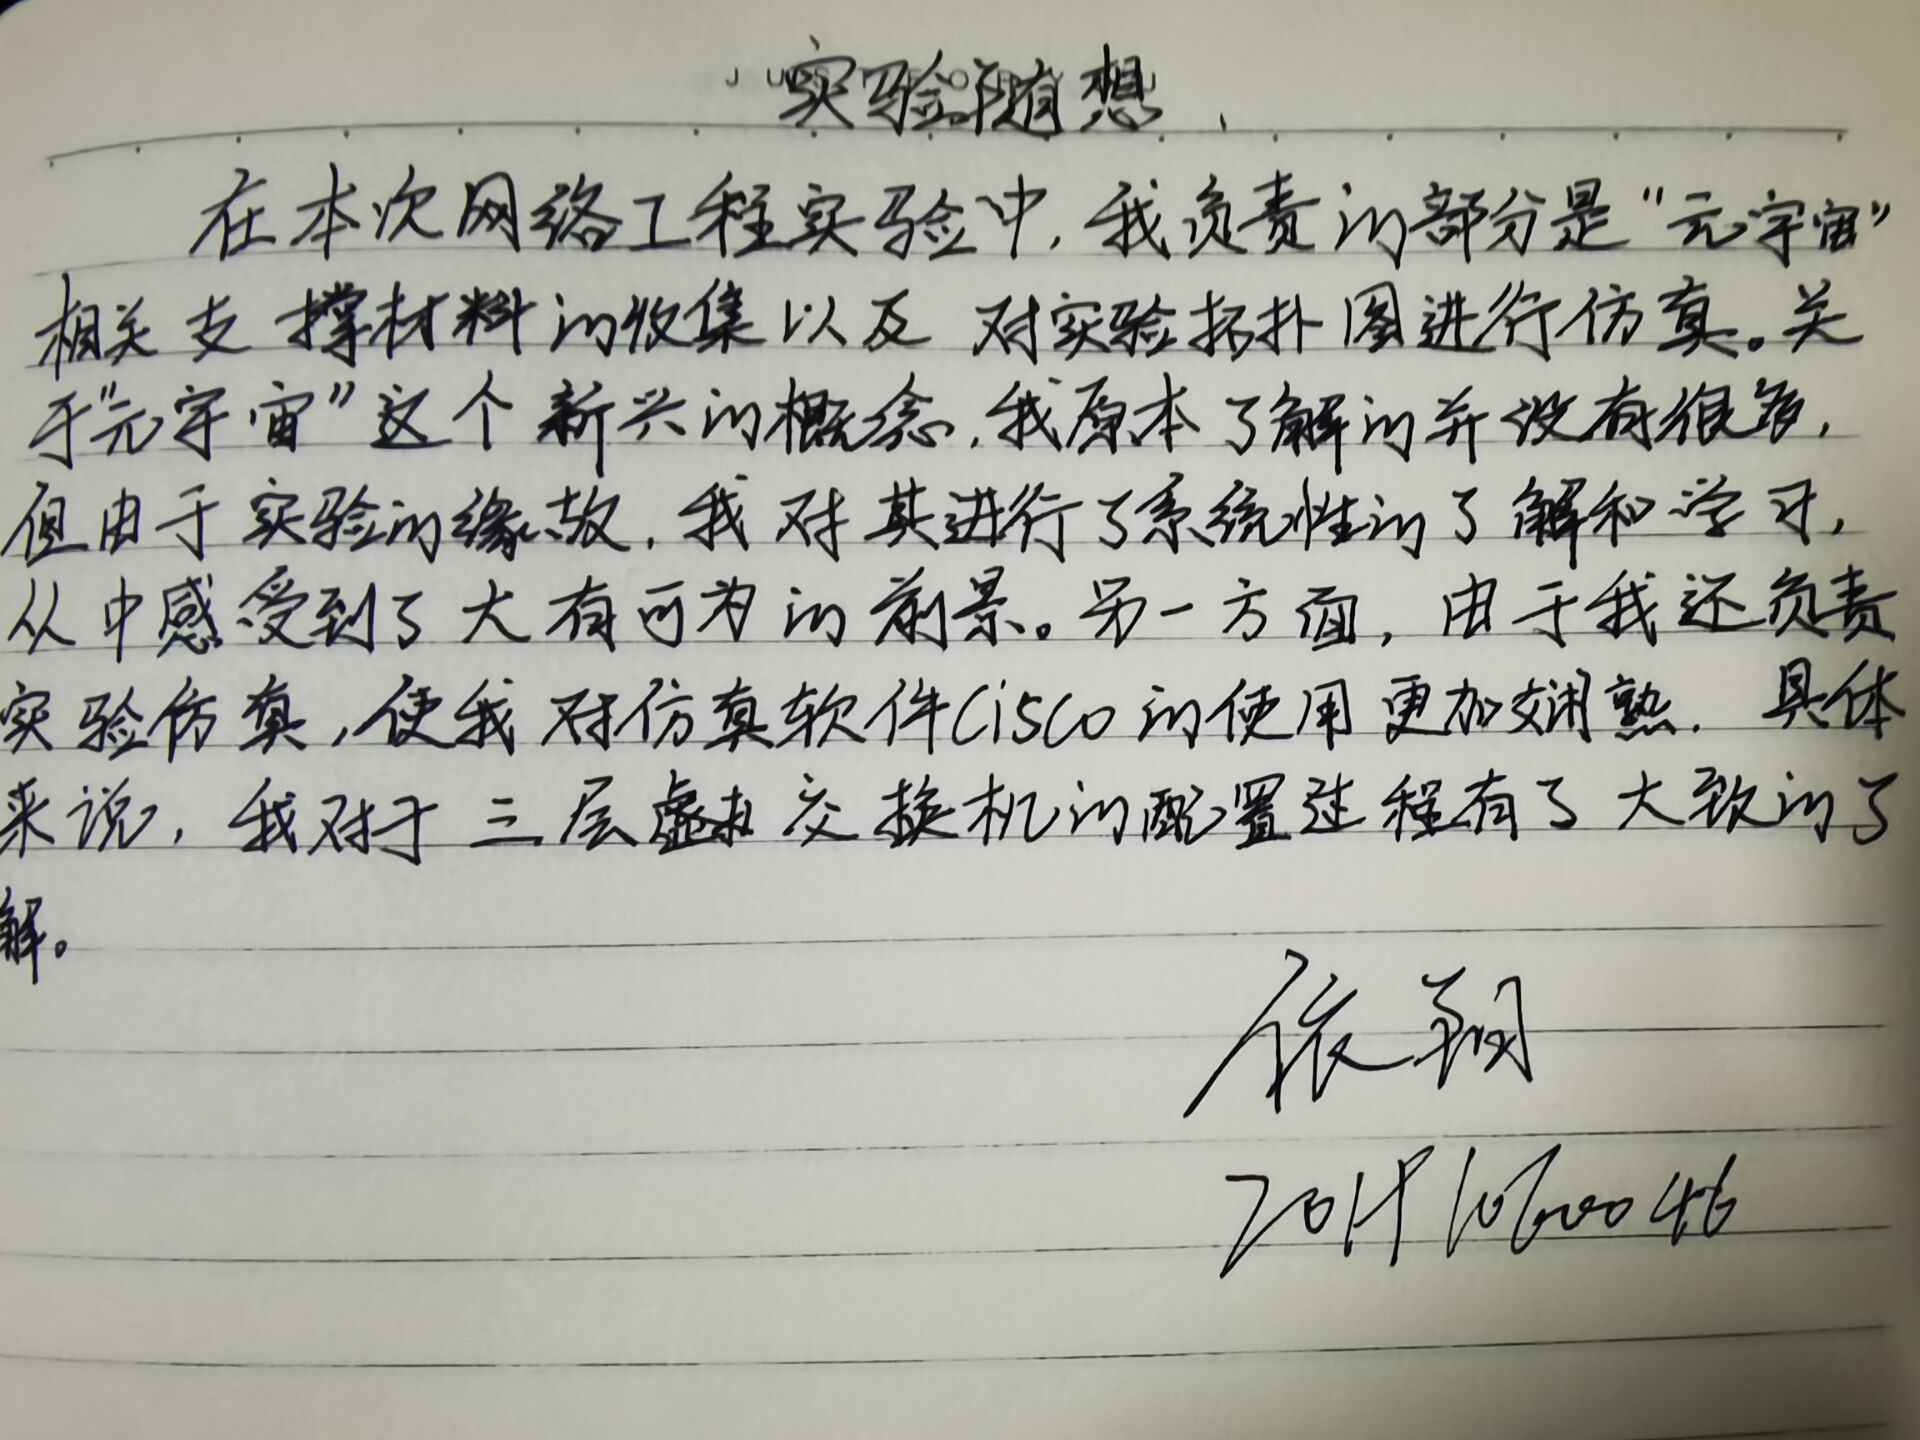 实验随想
在本次网络工程实验中，我负责的部分是“元宇宙”
相关支撑材料的收集以及对实验拓扑图进行仿真。关
于“元宇宙”这个新兴的概念，我原本了解的并没有很多，
但由于实验的缘故，我对其进行了系统性的了解和学习，
从中感受到了大有可为的前景。另一方面，由于我还负责
实验仿真，使我对仿真软件Cisco的使用更加娴熟．具体
来说，我对于三层虚拟交换机的配置过程有了大致的了
解。